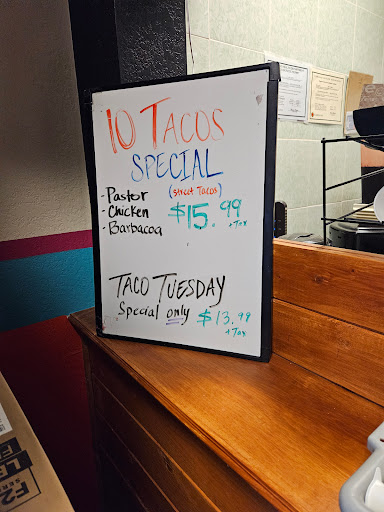 10 TACOS
SPECIAL
(street Tacos)
- Pastor
- Chicken
- Barbacoa
$15.99
+Tax
TACO TUESDAY
Special only $13.99
+Tax
F2